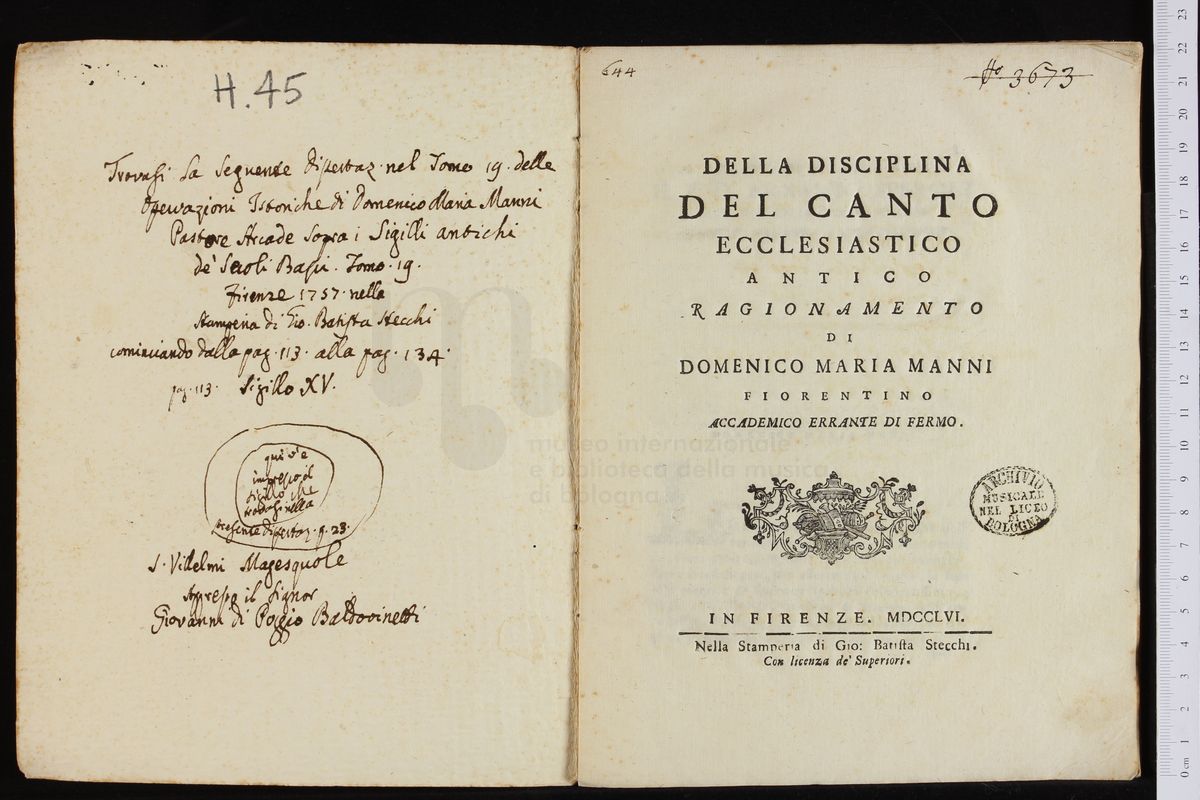 H.45
Trovasi La Seguente dissertaz. nel Tomo 19. delle
Osservazioni Istoriche di Domenico Maria Manni
Pastore Arcade Sopra i Sigilli antichi
de' Secoli Bassi. Tomo. 19.
Firenze 1757. nella
Stamperia di Gio. Batista Stecchi
cominciando dalla pag. 113. alla pag. 134.
pag. 113. Sigillo XV.
qui v'e
impresso il
Sigillo che
nella
presente dissertaz. p. 23.
S. Villelmi Magesquole
Appresso il Signor
Giovanni di Poggio Baldovinetti
644
No. 3673
DELLA DISCIPLINA
DEL CANTO
ECCLESIASTICO
ANTICO
RAGIONAMENTO
DI
DOMENICO MARIA MANNI
FIORENTINO
ACCADEMICO ERRANTE DI FERMO.
ARCHIVIO
MUSICALE
NEL LICEO
DI
BOLOGNA
IN FIRENZE. MDCCLVI.
Nella Stamperia di Gio: Batista Stecchi.
Con licenza de' Superiori.
museo internazionale
e biblioteca della musica
di bologna
0 cm 1 2 3 4 5 6 7 8 9 10 11 12 13 14 15 16 17 18 19 20 21 22 23